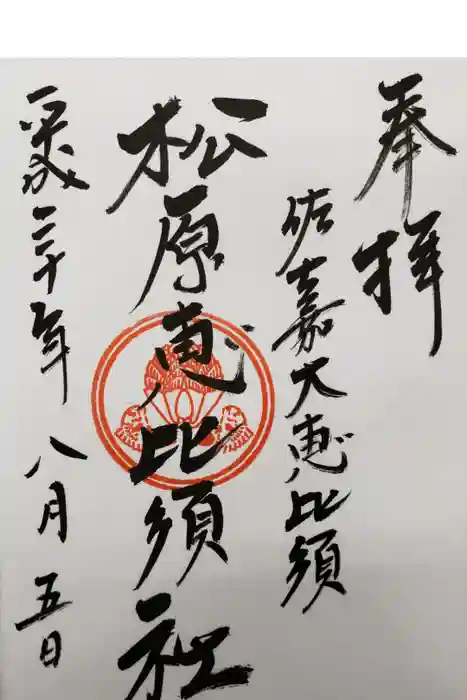 奉拝
佐嘉大恵比須
松原恵比須社
平成三十年八月五日